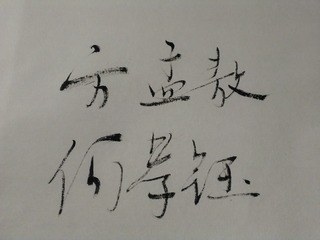 方孟敖
何孝钰